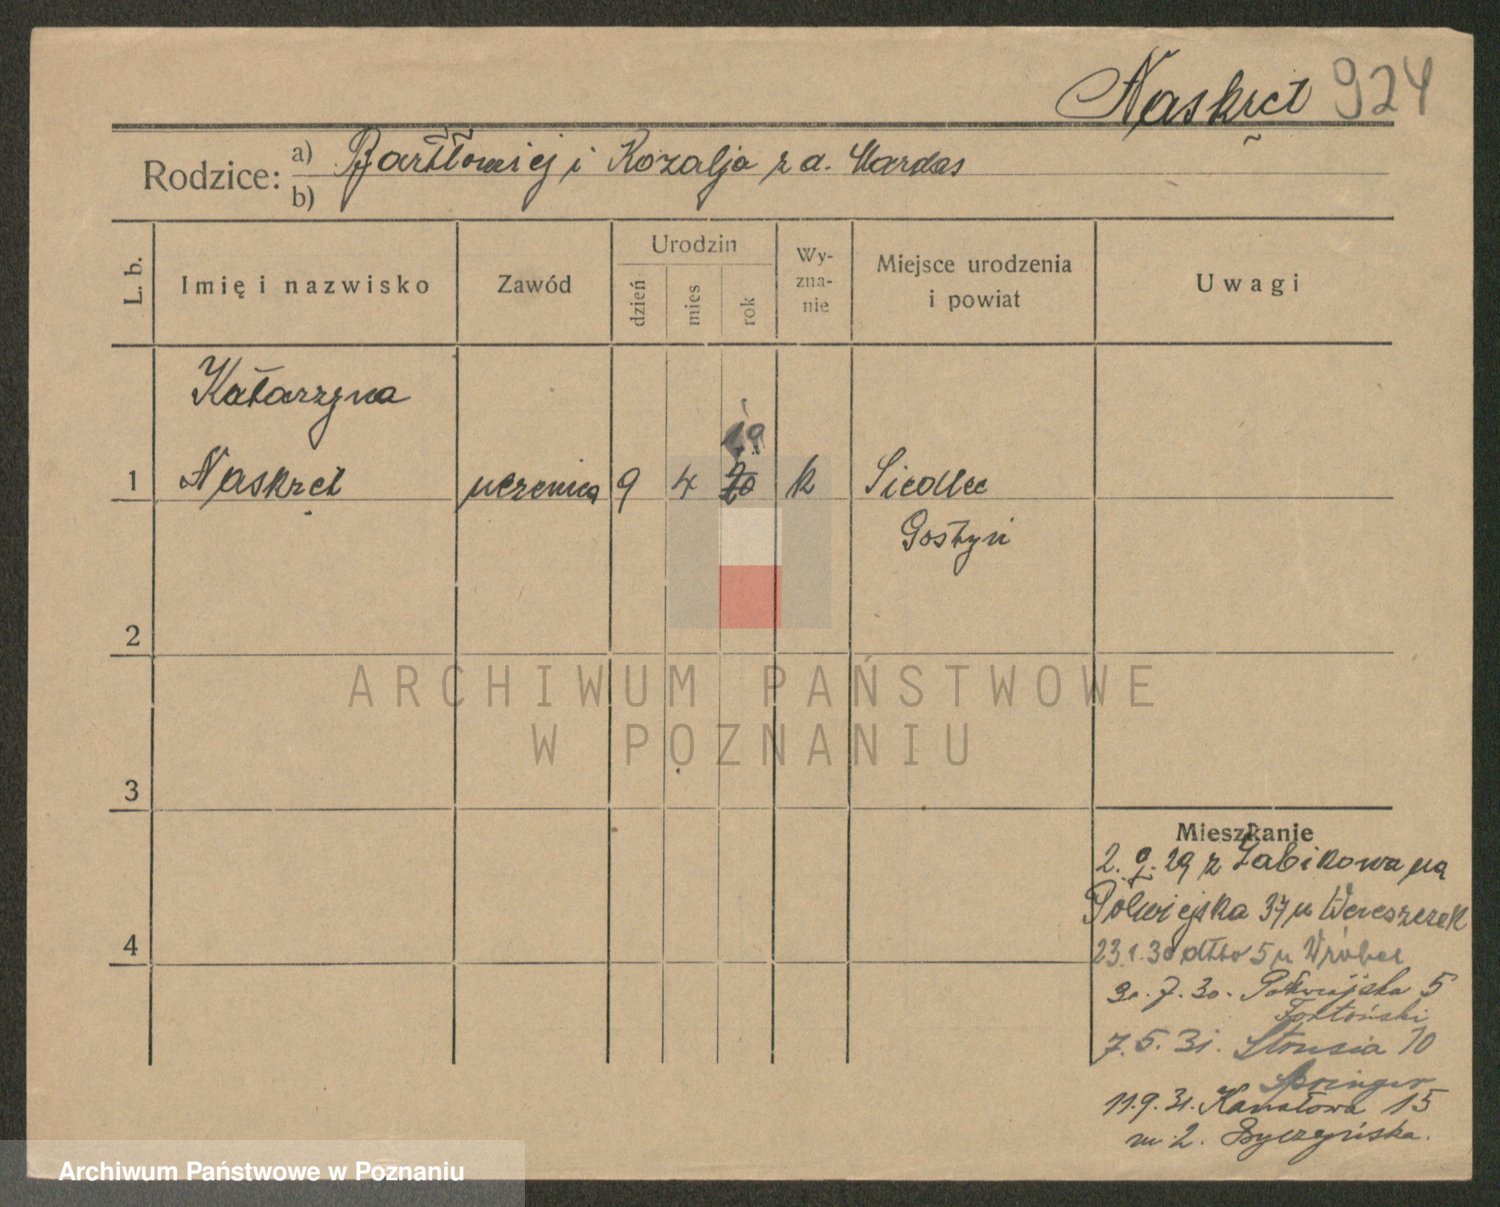 Naskręt 924
Rodzice: a) Bartłomiej i Rozalja z d. Wardas
b)
L. b. Imię i nazwisko Zawód Urodzin dzień mies rok Wy-zna-nie Miejsce urodzenia i powiat Uwagi
Katarzyna
19
1 Naskret uczenica 9 4 20 k Siedlec
Gostyń
2
ARCHIWUM PAŃSTWOWE
W POZNANIU
3
Mieszkanie
2. 9. 29 z Żabikowa na
Półwiejska 37 u Wereszczek
4
23.1.30 dtto 5 u Wróbel
30. 7. 30. Półwiejska 5
7. 5. 31. Strusia 10
Springer
11.9.31. Kanałowa 15
m. 2. Byczyńska.
Archiwum Państwowe w Poznaniu